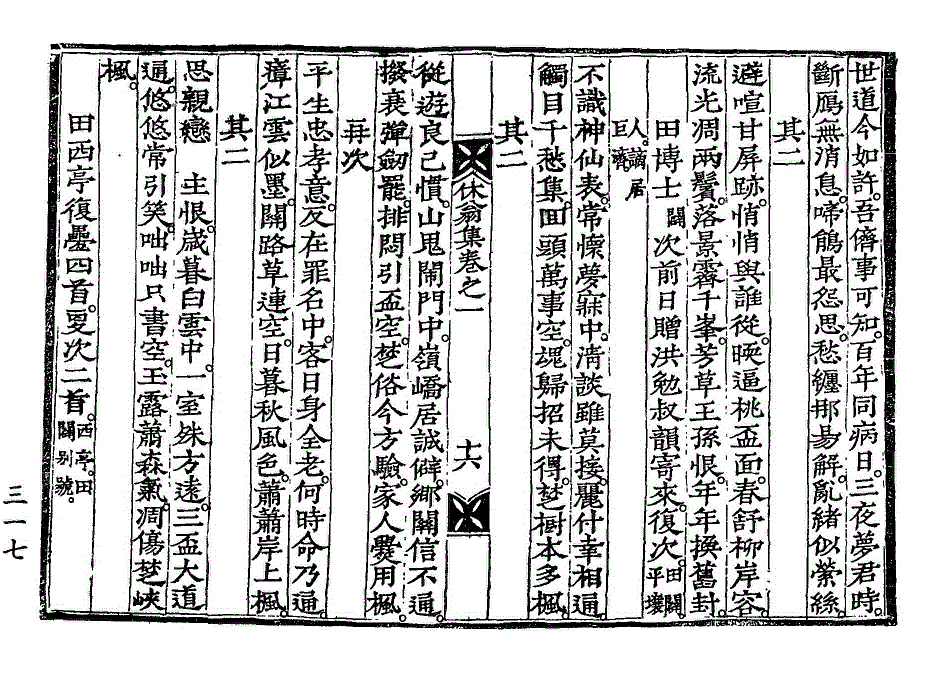 世道今如許。吾儕事可知。百年同病日。三夜夢君時。
斷鴈無消息。啼鵑最怨思。愁纏那易解。亂緒似縈絲。
其二
避喧甘屏跡。悄悄與誰從。暎逼桃盃面。春舒柳岸容。
流光凋兩鬢。落景霽千峯。芳草王孫恨。年年換舊封。
田博士闢次前日贈洪勉叔韻寄來。復次。田闢平壤
人。謫居巨濟。
不識神仙表。常懷夢寐中。淸談雖莫接。麗什幸相通。
觸目千愁集。回頭萬事空。魂歸招未得。楚樹本多楓。
其二
休翁集卷之一
十六
從遊良已慣。山鬼鬧門中。嶺嶠居誠僻。鄕關信不通。
撥衰彈劒罷。排悶引盃空。楚俗今方驗。家人爨用楓。
再次
平生忠孝意。反在罪名中。客日身全老。何時命乃通。
瘴江雲似墨。關路草連空。日暮秋風色。蕭蕭岸上楓。
其二
思親戀 主恨。歲暮白雲中。一室殊方遠。三盃大道
通。悠悠常引笑。咄咄只書空。玉露蕭森氣。凋傷楚峽
楓。
田西亭復疊四首。更次二首。西亭。田闢別號。
三一七